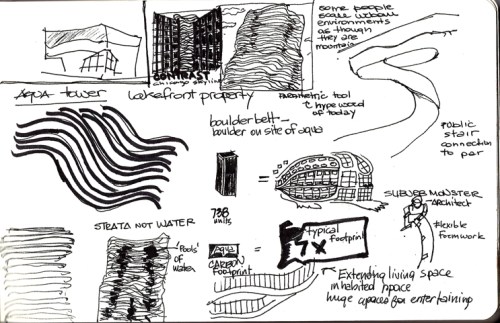 some people
scale urban
environments
as though
they are
mountain
CONTRAST
chicago skyline
AQUA tower
lakefront property
parametric tool
hype word
of today
boulder belt—
boulder on site of aqua
public
stair
connection
to par
=
738
units
SUBURB MONSTER
Architect
flexible
formwork
STRATA NOT WATER
'Pools'
of
water
Aqua
CARBON
footprint
=
typical
footprint
7x
Extending living space
inhabited space
huge spaces for entertaining